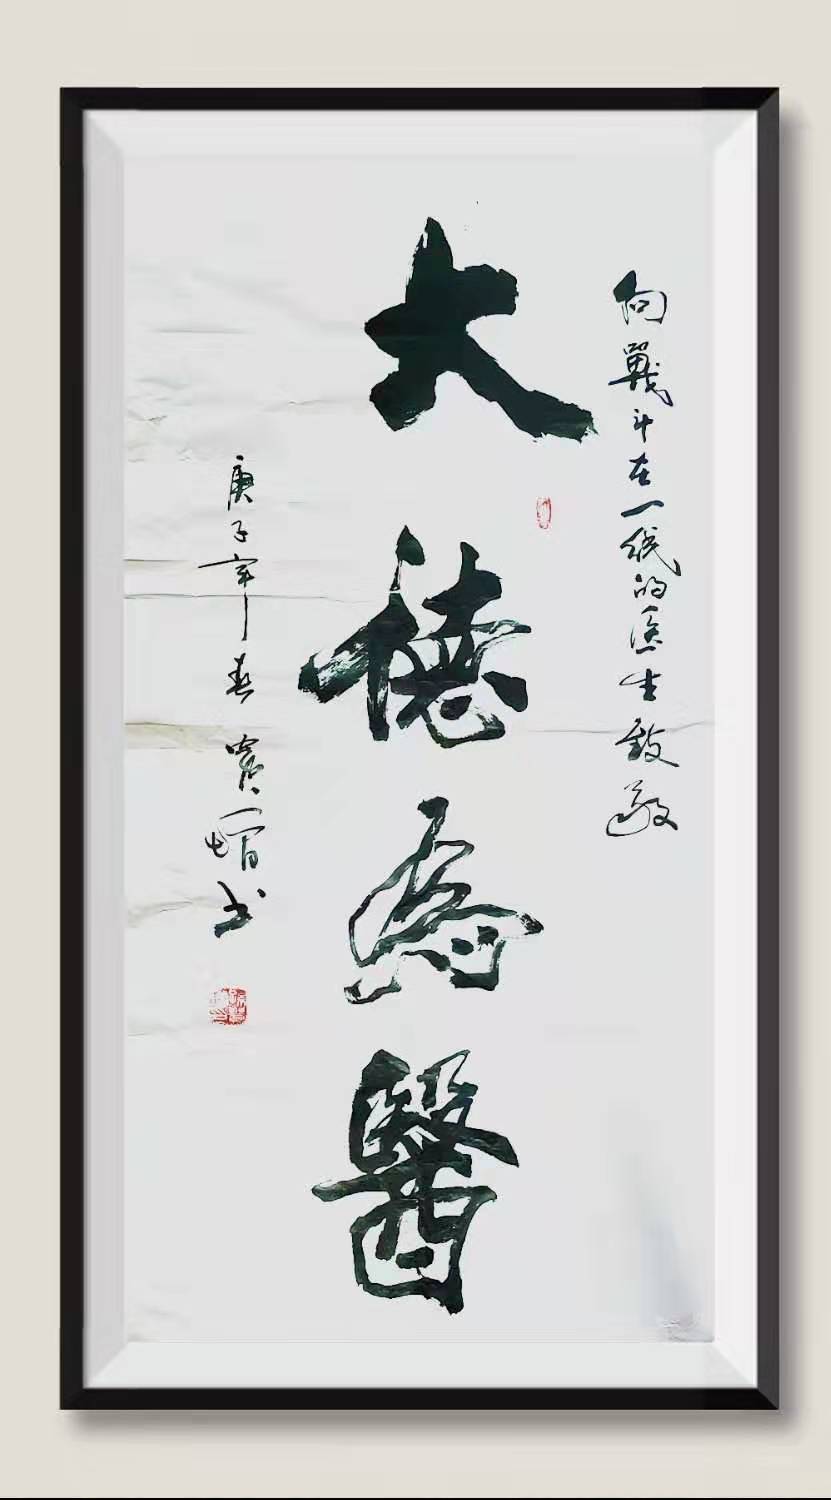 向戰斗在一线的医生致敬
大德為醫
庚子年春 书